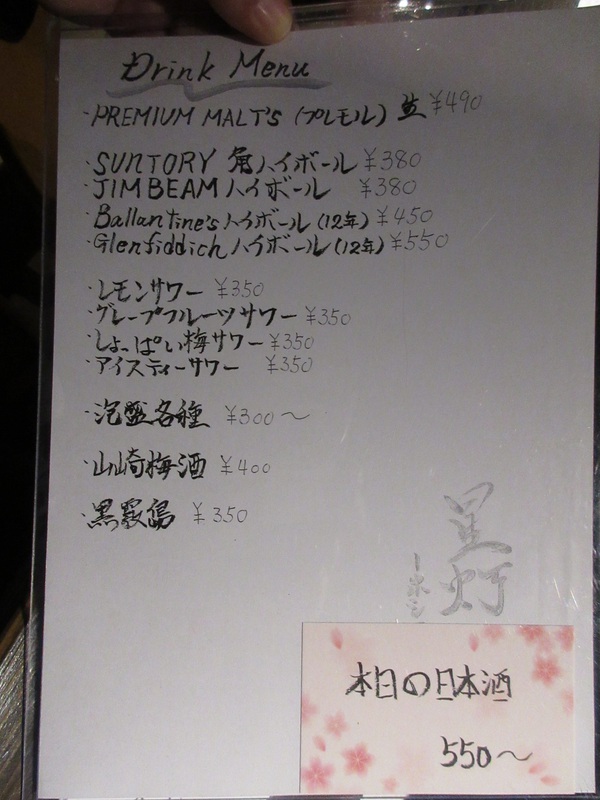 Drink Menu
・PREMIUM MALT'S (プレモル) 生 ¥490
・SUNTORY 角ハイボール ¥380
・JIM BEAM ハイボール ¥380
・Ballantine's ハイボール (12年) ¥450
・Glenfiddich ハイボール (12年) ¥550
・レモンサワー ¥350
・グレープフルーツサワー ¥350
・しょっぱい梅サワー ¥350
・アイスティーサワー ¥350
・泡盛各種 ¥300〜
・山崎梅酒 ¥400
・黒霧島 ¥350
星灯
本日の日本酒
550〜